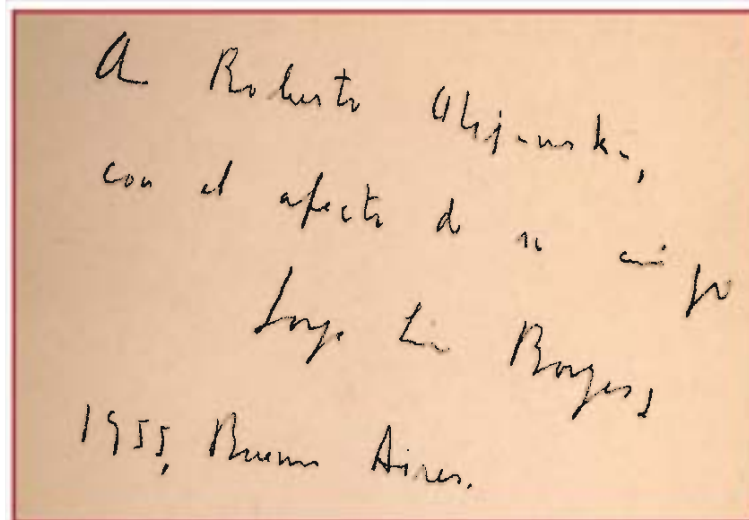 A Roberto Alejandro,
con el afecto de su amigo
Jorge Luis Borges
1955, Buenos Aires.